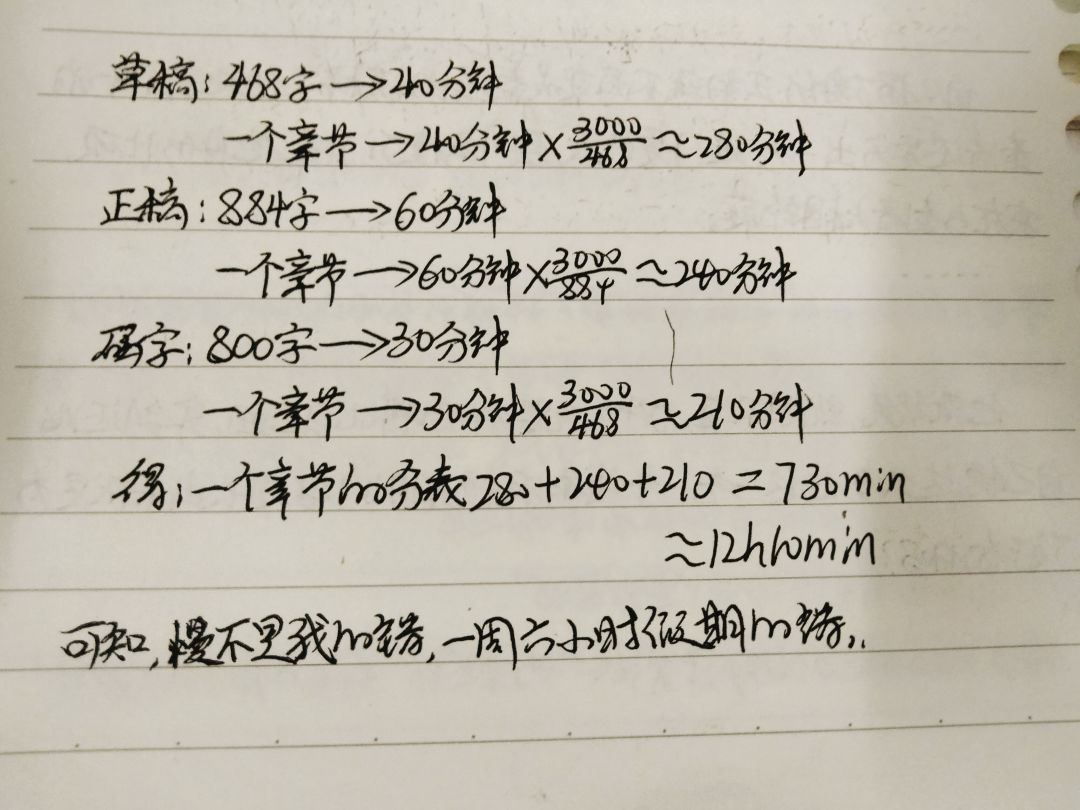 草稿：468字→40分钟
一个章节→40分钟×3000/468≈280分钟
正稿：884字→60分钟
一个章节→60分钟×3000/884≈240分钟
码字：800字→30分钟
一个章节→30分钟×3000/468≈210分钟
得：一个章节的务表280+240+210=730min
≈12h10min
可知，慢不是我的错，一周六小时假期的错..